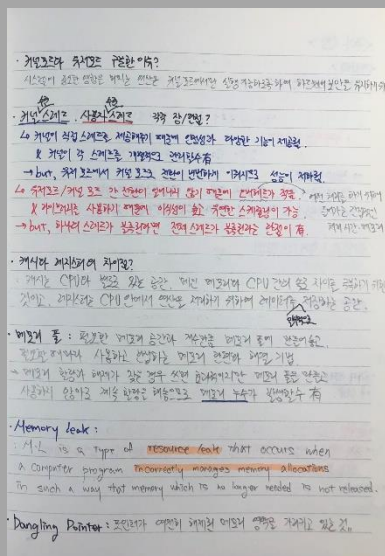 · 커널모드와 유저모드 구분한 이유?
시스템에 중요한 영향을 미치는 연산은 커널모드에서만 실행 가능하도록 하여 하드웨어 보안을 유지하기 위
· 커널 스레드, 사용자 스레드 각각 장/단점?
↳ 커널이 직접 스레드를 제공해주기 때문에 안정성과 다양한 기능이 제공됨.
& 커널이 각 스레드를 개별적으로 관리할 수 有
→ but, 유저모드에서 커널 모드로 전환이 빈번하게 이뤄지므로 성능이 저하됨.
↳ 유저모드/커널 모드 간 전환이 일어나지 않기 때문에 오버헤드가 적음.
& 라이브러리로 사용하기 때문에 이식성이 높고 유연한 스케줄링이 가능
→ but, 하나의 스레드가 블록된다면 전체 스레드가 블록된다는 단점이 有.
· 캐시와 레지스터의 차이점?
: 캐시는 CPU와 별도로 있는 공간, 메인 메모리와 CPU 간의 속도 차이를 극복하기 위한
것이고, 레지스터는 CPU 안에서 연산을 처리하기 위하여 데이터를 저장하는 공간.
· 메모리 풀: 필요한 메모리 공간과 개수만큼 메모리 풀에 만들어놓고,
필요할 때마다 사용하고 반납하는 메모리 할당과 해제 기법
→ 메모리 할당과 해제가 잦은 경우 쓰면 효과적이지만 메모리 풀을 만들고
사용하지 않아도 계속 할당을 해놓으므로 메모리 누수가 발생할 수 有
· Memory leak:
: M.L is a type of resource leak that occurs when
a computer program incorrectly manages memory allocations
in such a way that memory which is no longer needed is not released.
· Dangling Pointer: 포인터가 여전히 해제된 메모리 영역을 가리키고 있는 것.